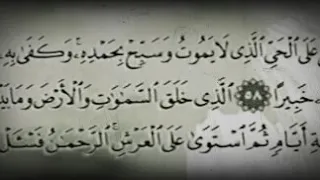 عَلَى ٱلْحَىِّ ٱلَّذِى لَا يَمُوتُ وَسَبِّحْ بِحَمْدِهِۦ ۚ وَكَفَىٰ بِهِۦ
خَبِيرًا ٥٨ ٱلَّذِى خَلَقَ ٱلسَّمَٰوَٰتِ وَٱلْأَرْضَ وَمَا بَيْنَ
أَيَّامٍ ثُمَّ ٱسْتَوَىٰ عَلَى ٱلْعَرْشِ ۚ ٱلرَّحْمَٰنُ فَسْـَٔلْ